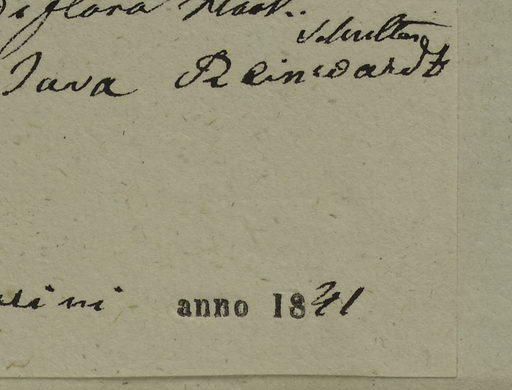 iflora
Schultes
Java Reinwardt
ini anno 1841